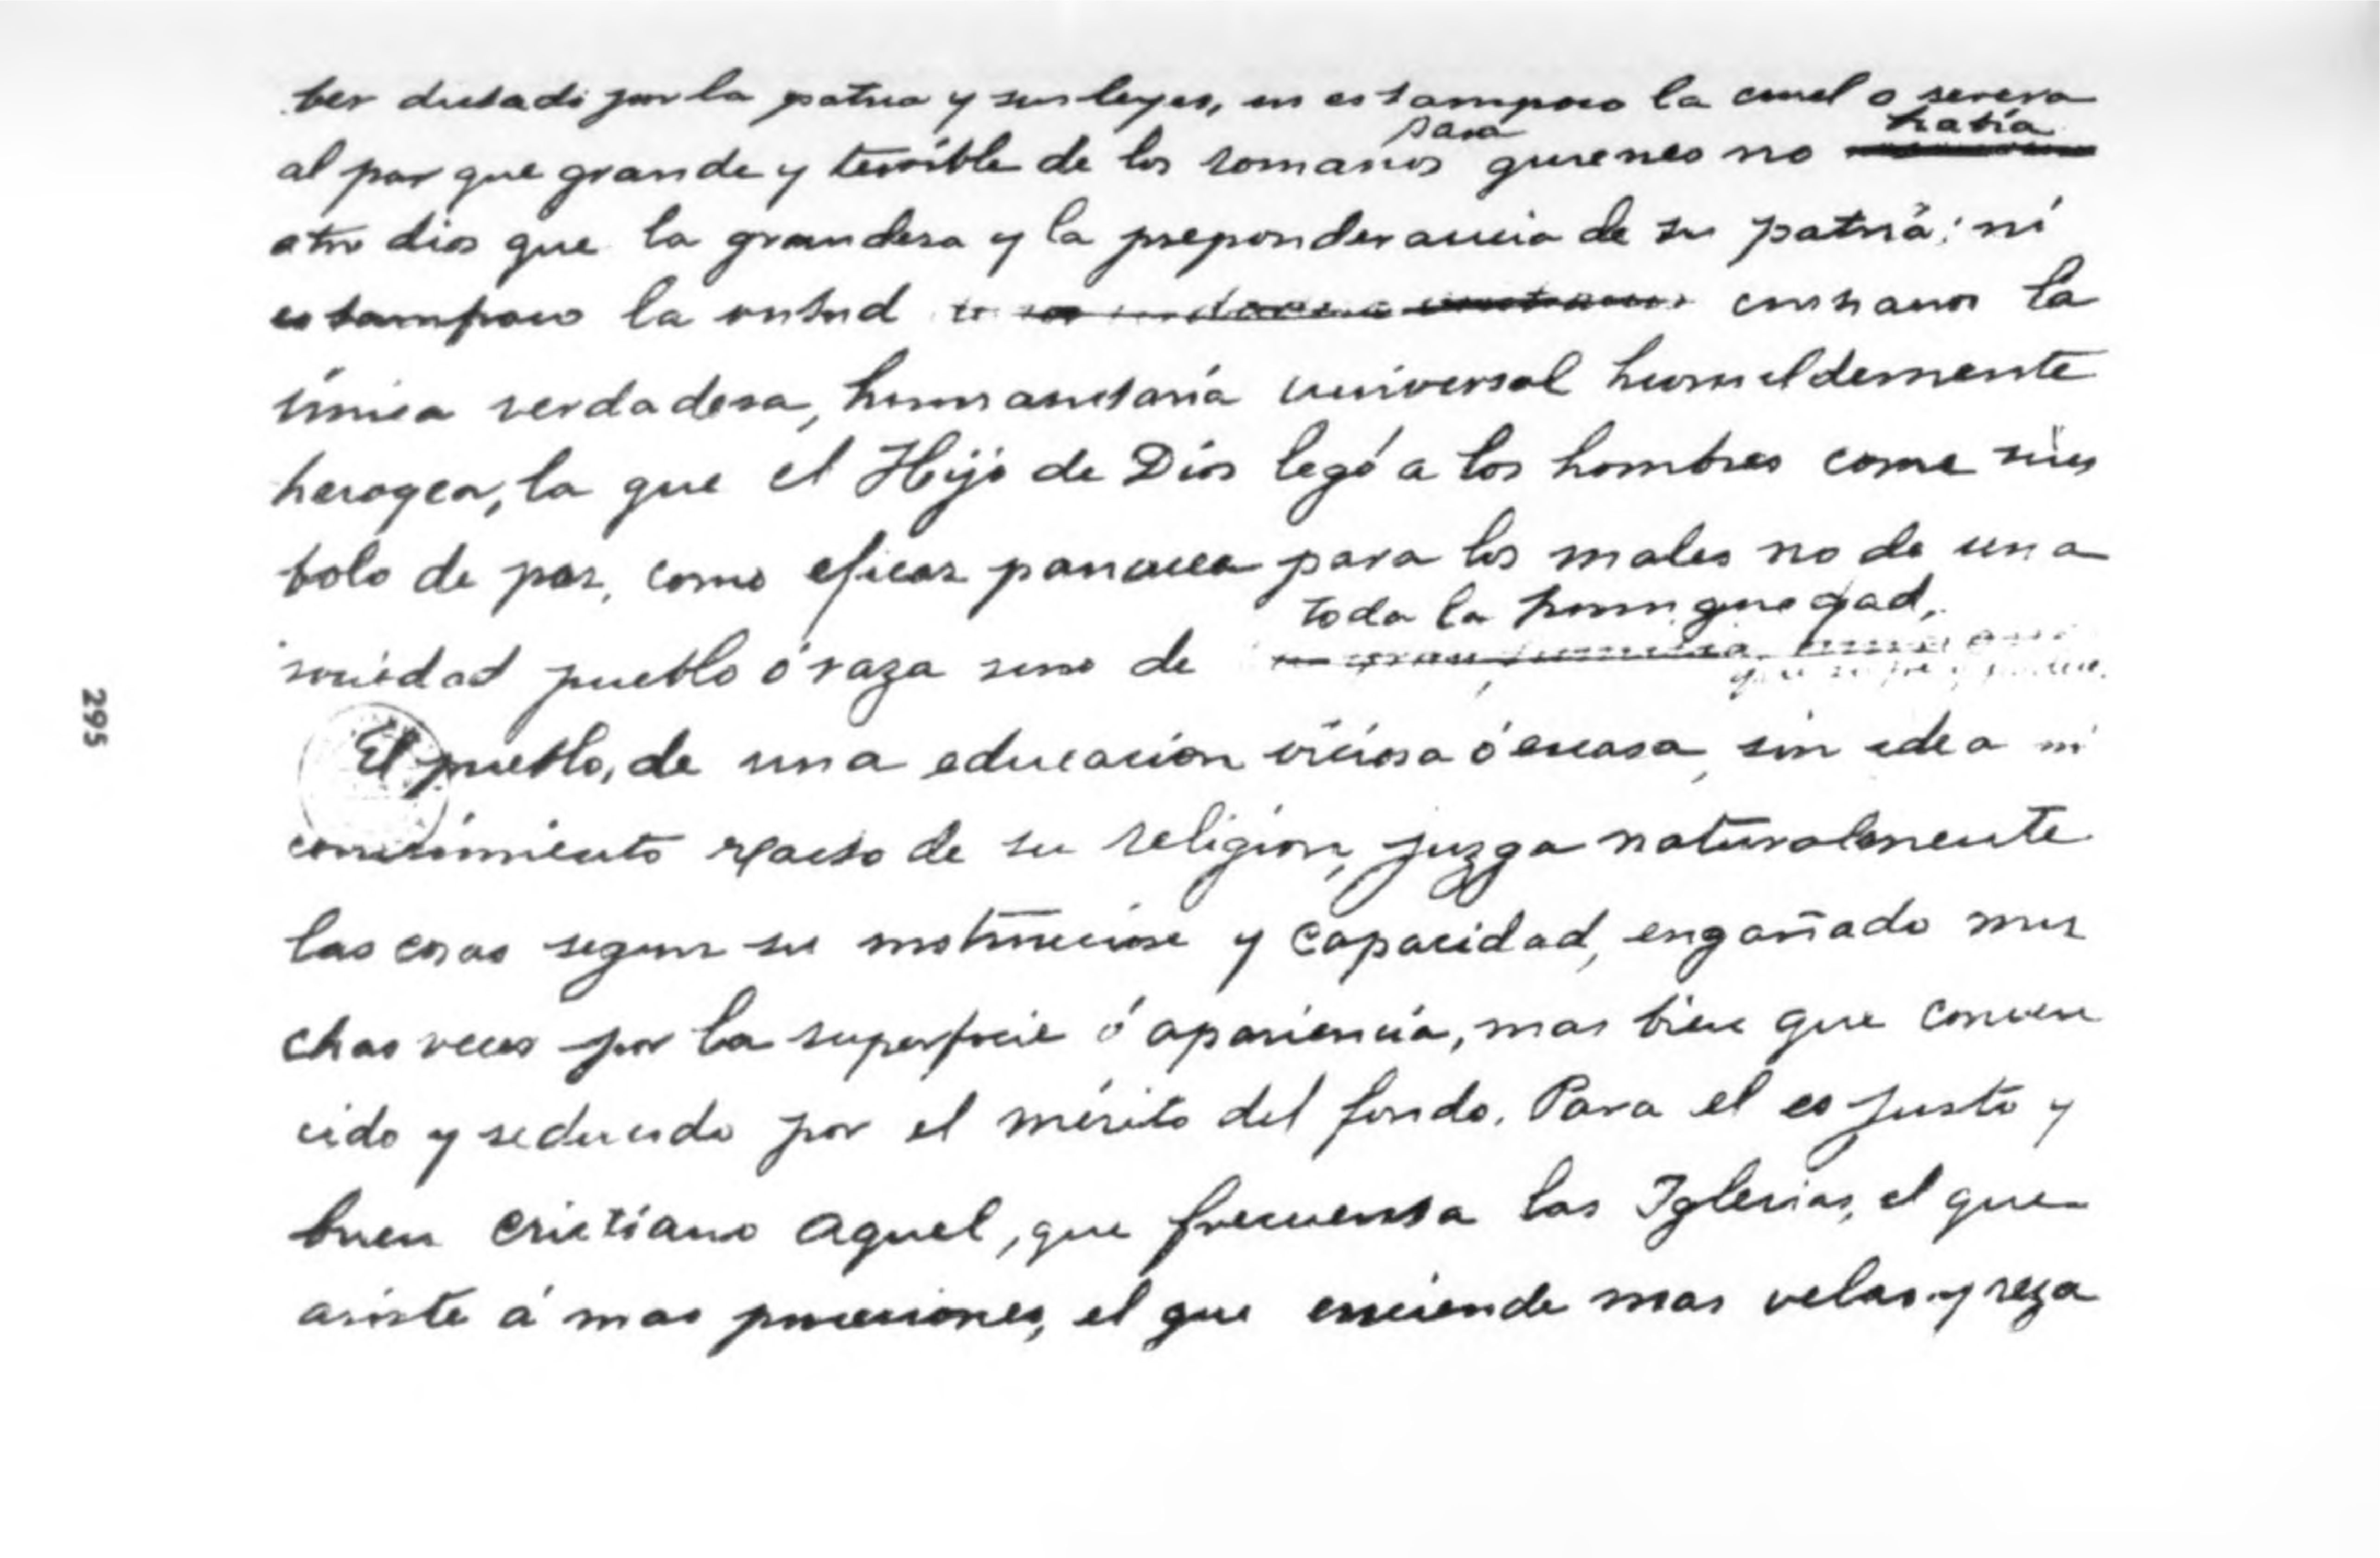 ber dictado por la patria y sus leyes, ni es tampoco la cruel o severa
al par que grande y terrible de los romanos para quienes no había
otro dios que la grandesa y la preponderancia de su patria: ni
es tampoco la virtud cristiana la
única verdadera, humanitaria universal humildemente
heroyca, la que el Hijo de Dios legó a los hombres como sím
bolo de paz, como eficaz panacea para los males no de una
toda la
sociedad pueblo ó raza sino de
El pueblo, de una educacion viciosa ó escasa, sin idea ni
conocimiento exacto de su religion, juzga naturalmente
las cosas segun su instruccion y capacidad, engañado mu
chas veces por la superficie ó apariencia, mas bien que conven
cido y seducido por el mérito del fondo. Para el es justo y
buen cristiano aquel, que frecuenta las Iglesias, el que
asiste á mas procesiones, el que enciende mas velas y reza
295